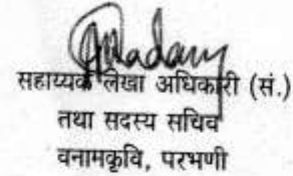 सहाय्यक लेखा अधिकारी (सं.)
तथा सदस्य सचिव
वनामकृवि, परभणी